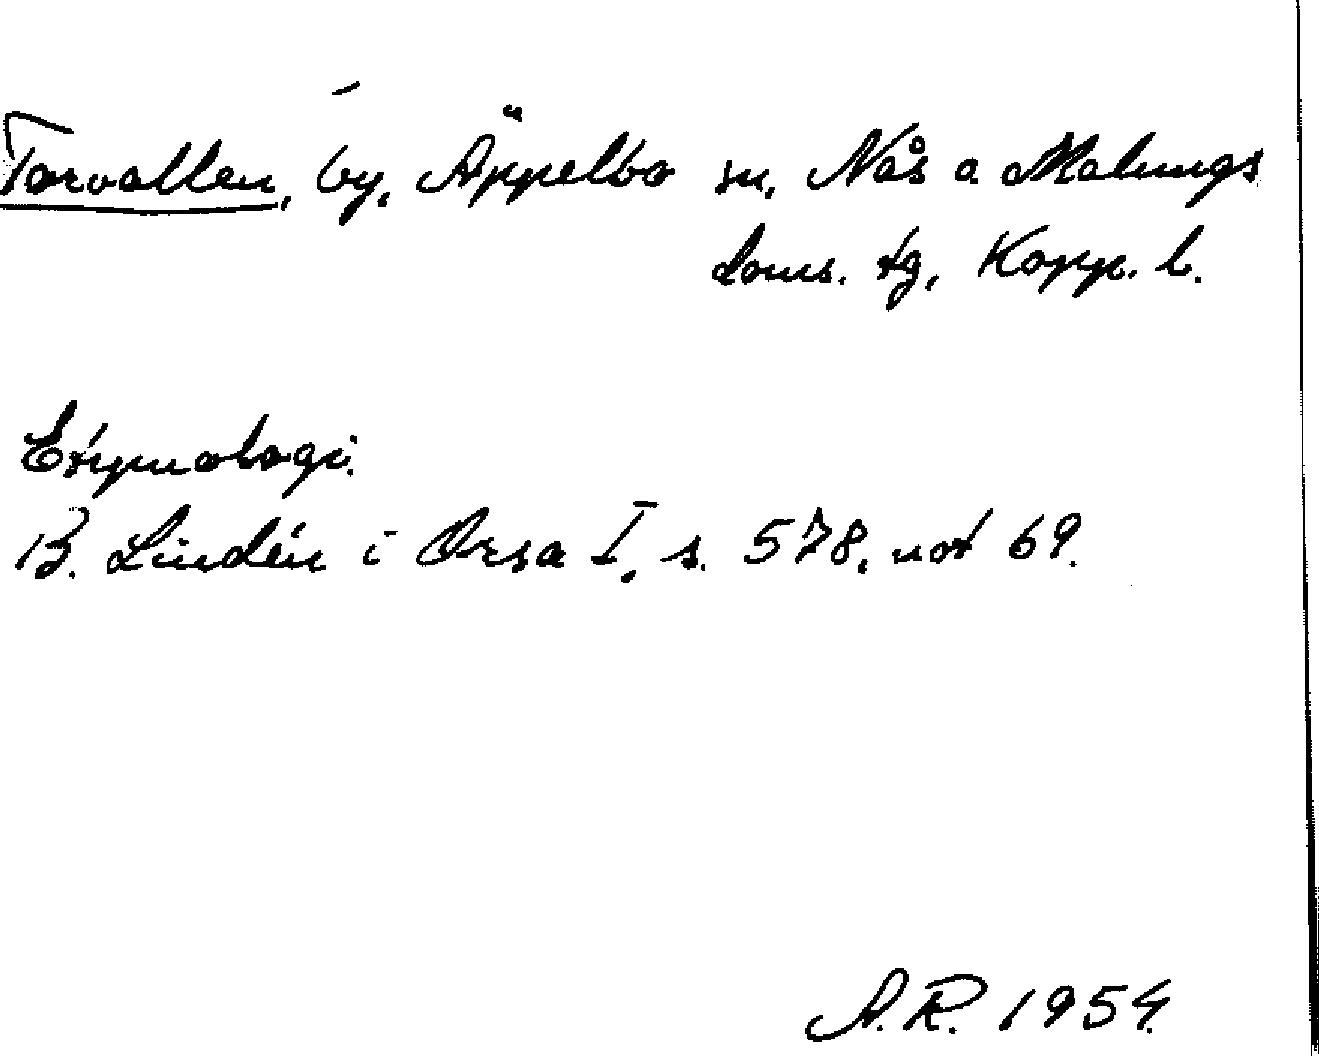 Torvallen, by, Äppelbo sn, Nås o. Malungs
doms. tg, Kopp. l.
Etymologi.
B. Lindén i Orsa I, s. 578, not 69.
A.R. 1954.